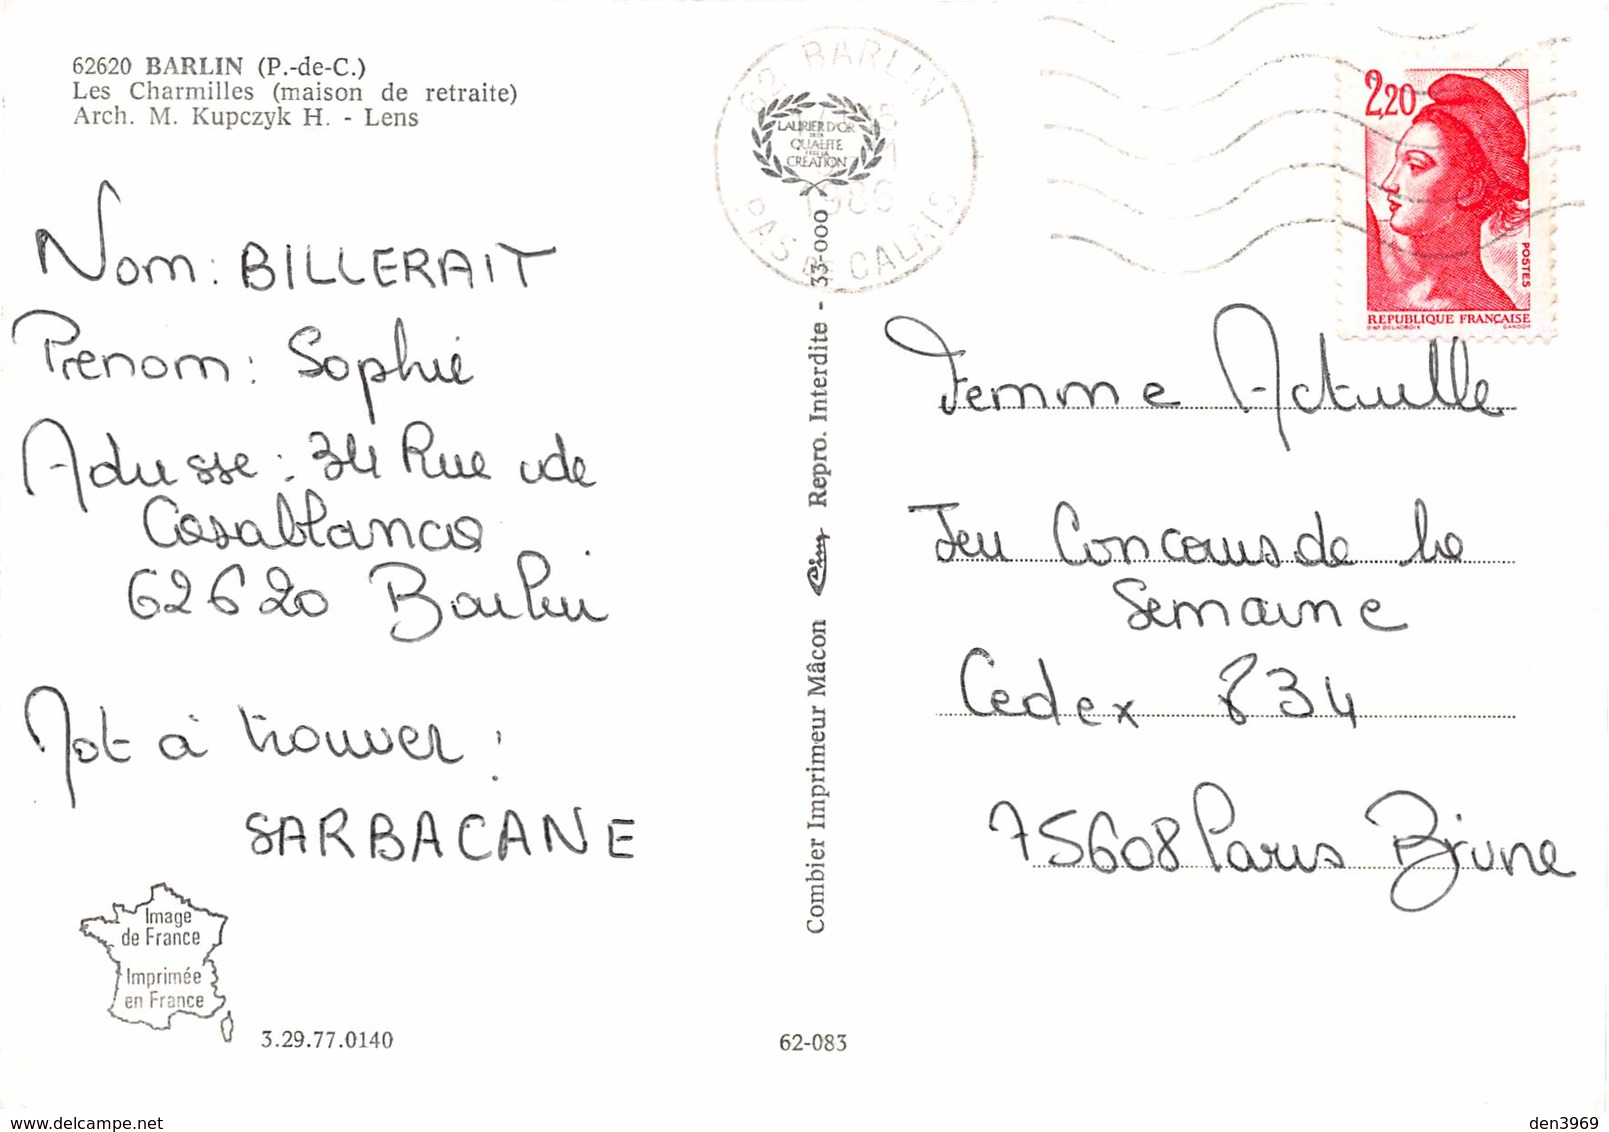 62620 BARLIN (P.-de-C.)
Les Charmilles (maison de retraite)
Arch. M. Kupczyk H. - Lens
62 BARLIN
1986
PAS DE CALAIS
LAURIER D'OR
DE LA
QUALITE
CREATION
2,20
POSTES
REPUBLIQUE FRANÇAISE
D'AP. DELACROIX GANDON
Nom: BILLERAIT
Prenom: Sophie
Adresse: 34 Rue de
Casablanca
62620 Barlin
Mot à trouver:
SARBACANE
Image
de France
Imprimée
en France
3.29.77.0140
Combier Imprimeur Mâcon Cim Repro. Interdite - 33-000
62-083
Femme Actuelle
Jeu Concours de la
Semaine
Cedex 834
75608 Paris Brune
www.delcampe.net
den3969